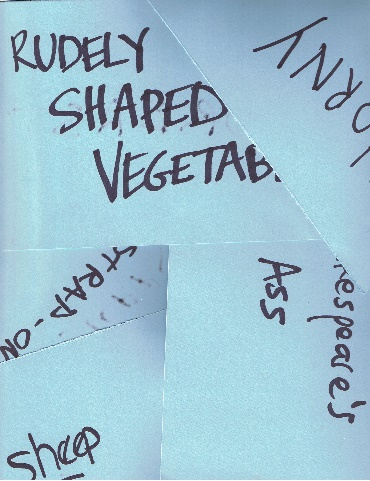 RUDELY
SHAPED
VEGETAB
ORNY
STRAP-ON
Ass
kespeare's
sheep